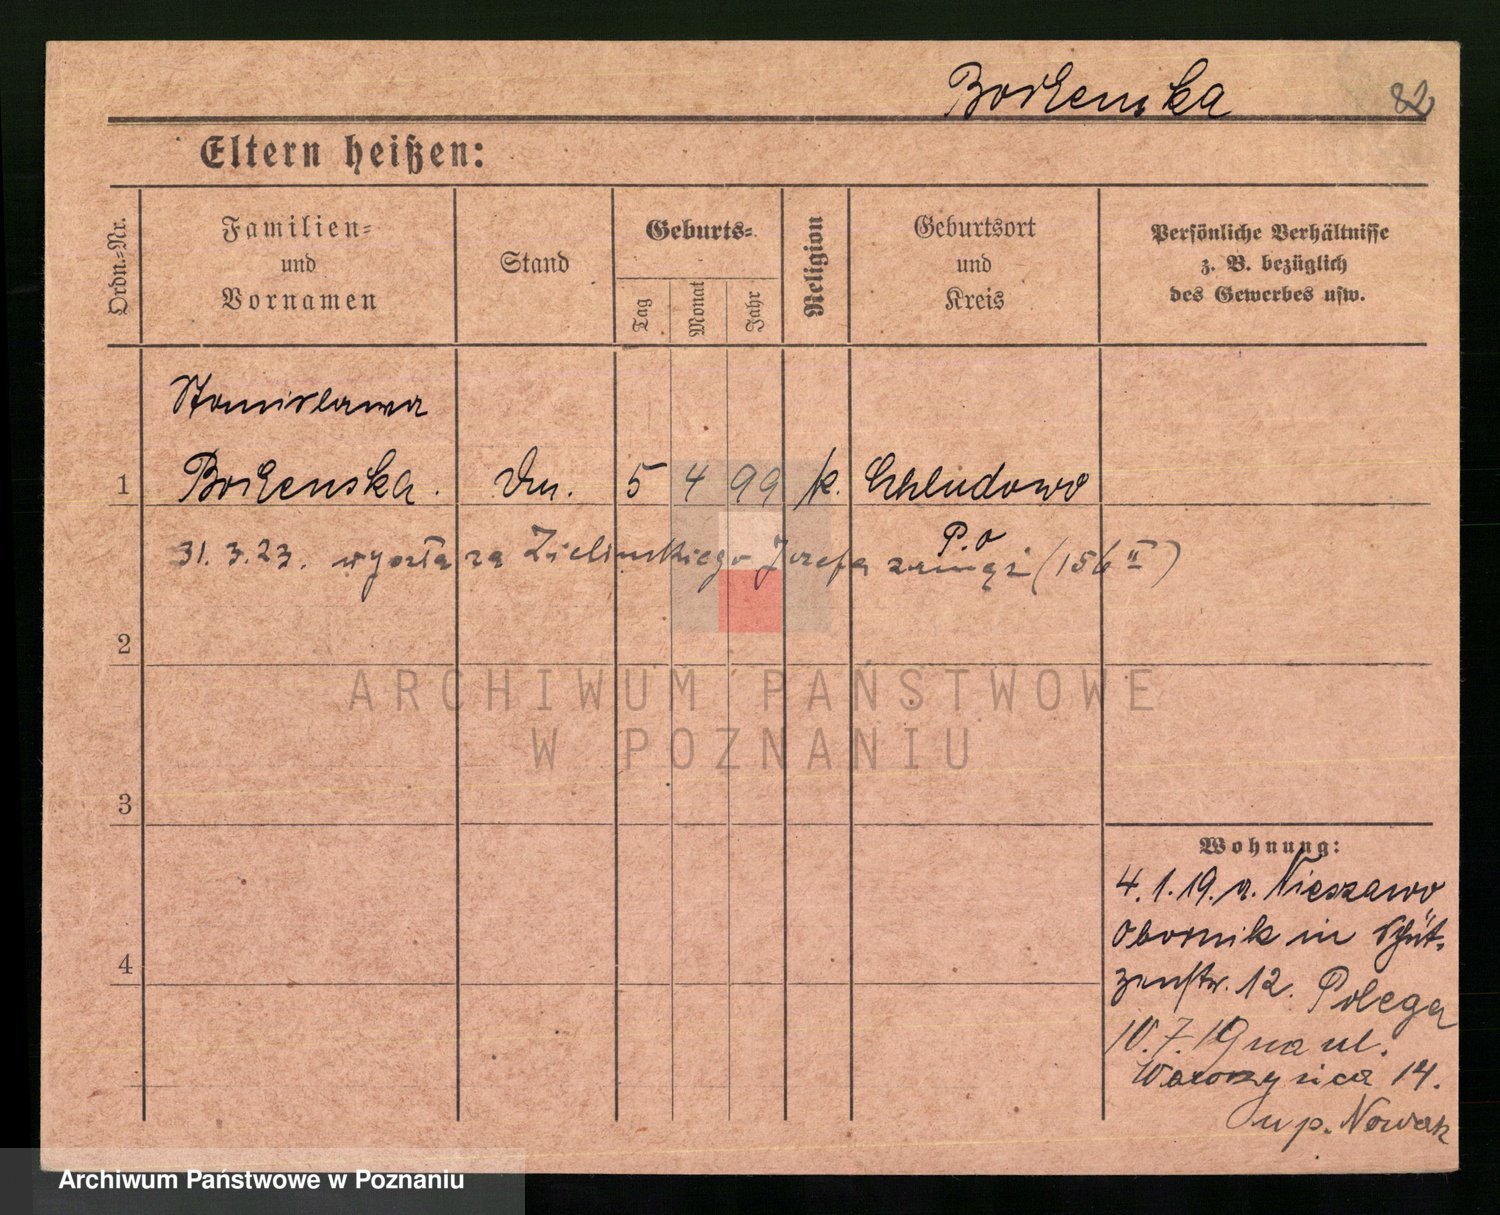 Borkenska 82
Eltern heißen:
Ordn.-Nr.
Familien-
und
Vornamen
Stand
Geburts-
Tag
Monat
Jahr
Religion
Geburtsort
und
Kreis
Persönliche Verhältnisse
z. B. bezüglich
des Gewerbes usw.
Stanisława
1 Borkenska. 5 4 99 k. Chludowo
P.O
31. 3. 23. wyszła za Zielinskiego Jozefa (156 II)
2
ARCHIWUM PAŃSTWOWE
W POZNANIU
3
Wohnung:
4. 1. 19. a. Nieszawo
Obornik in Schüt-
4
zenstr. 12. Polega
10. 7. 19 na ul.
14.
u p. Nowak
Archiwum Państwowe w Poznaniu